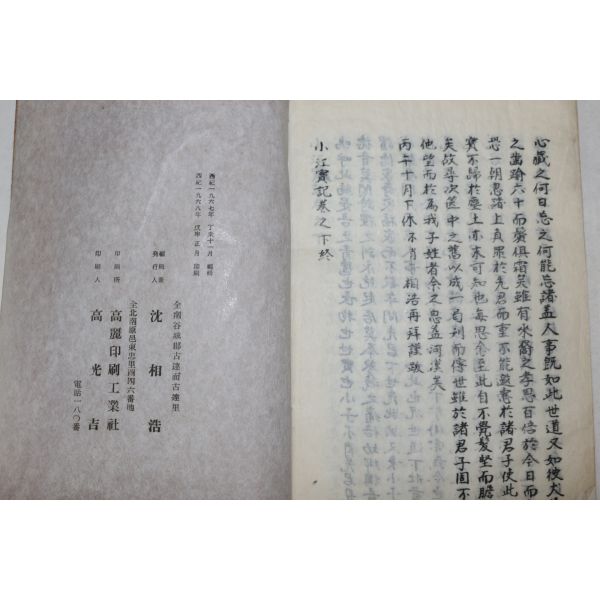 心藏之何日忘之何能忘諸盖人事旣如此世道又如彼
之齒踰六十而鬢俱霜矣雖有來裔之孝思百倍於今日而
恐一朝
實不歸於塵土亦未可知也每思念至此自不覺髮竪而膽
矣故尋次篋中之舊以成一局刊而傳世雖於諸君子固不
他望而於爲我子姓者令之思盖河漢矣
丙午十月下休不肖
相浩再拜謹跋
小江實記卷之下終
西紀一九六七年 丁未十一月 編輯
西紀一九六八年 戊申正月 印刷
全南谷城郡古達面古達里
編輯兼
發行人 沈相浩
全北南原邑東忠里四四六番地
印刷所 高麗印刷工業社
印刷人 高光吉
電話一八〇番